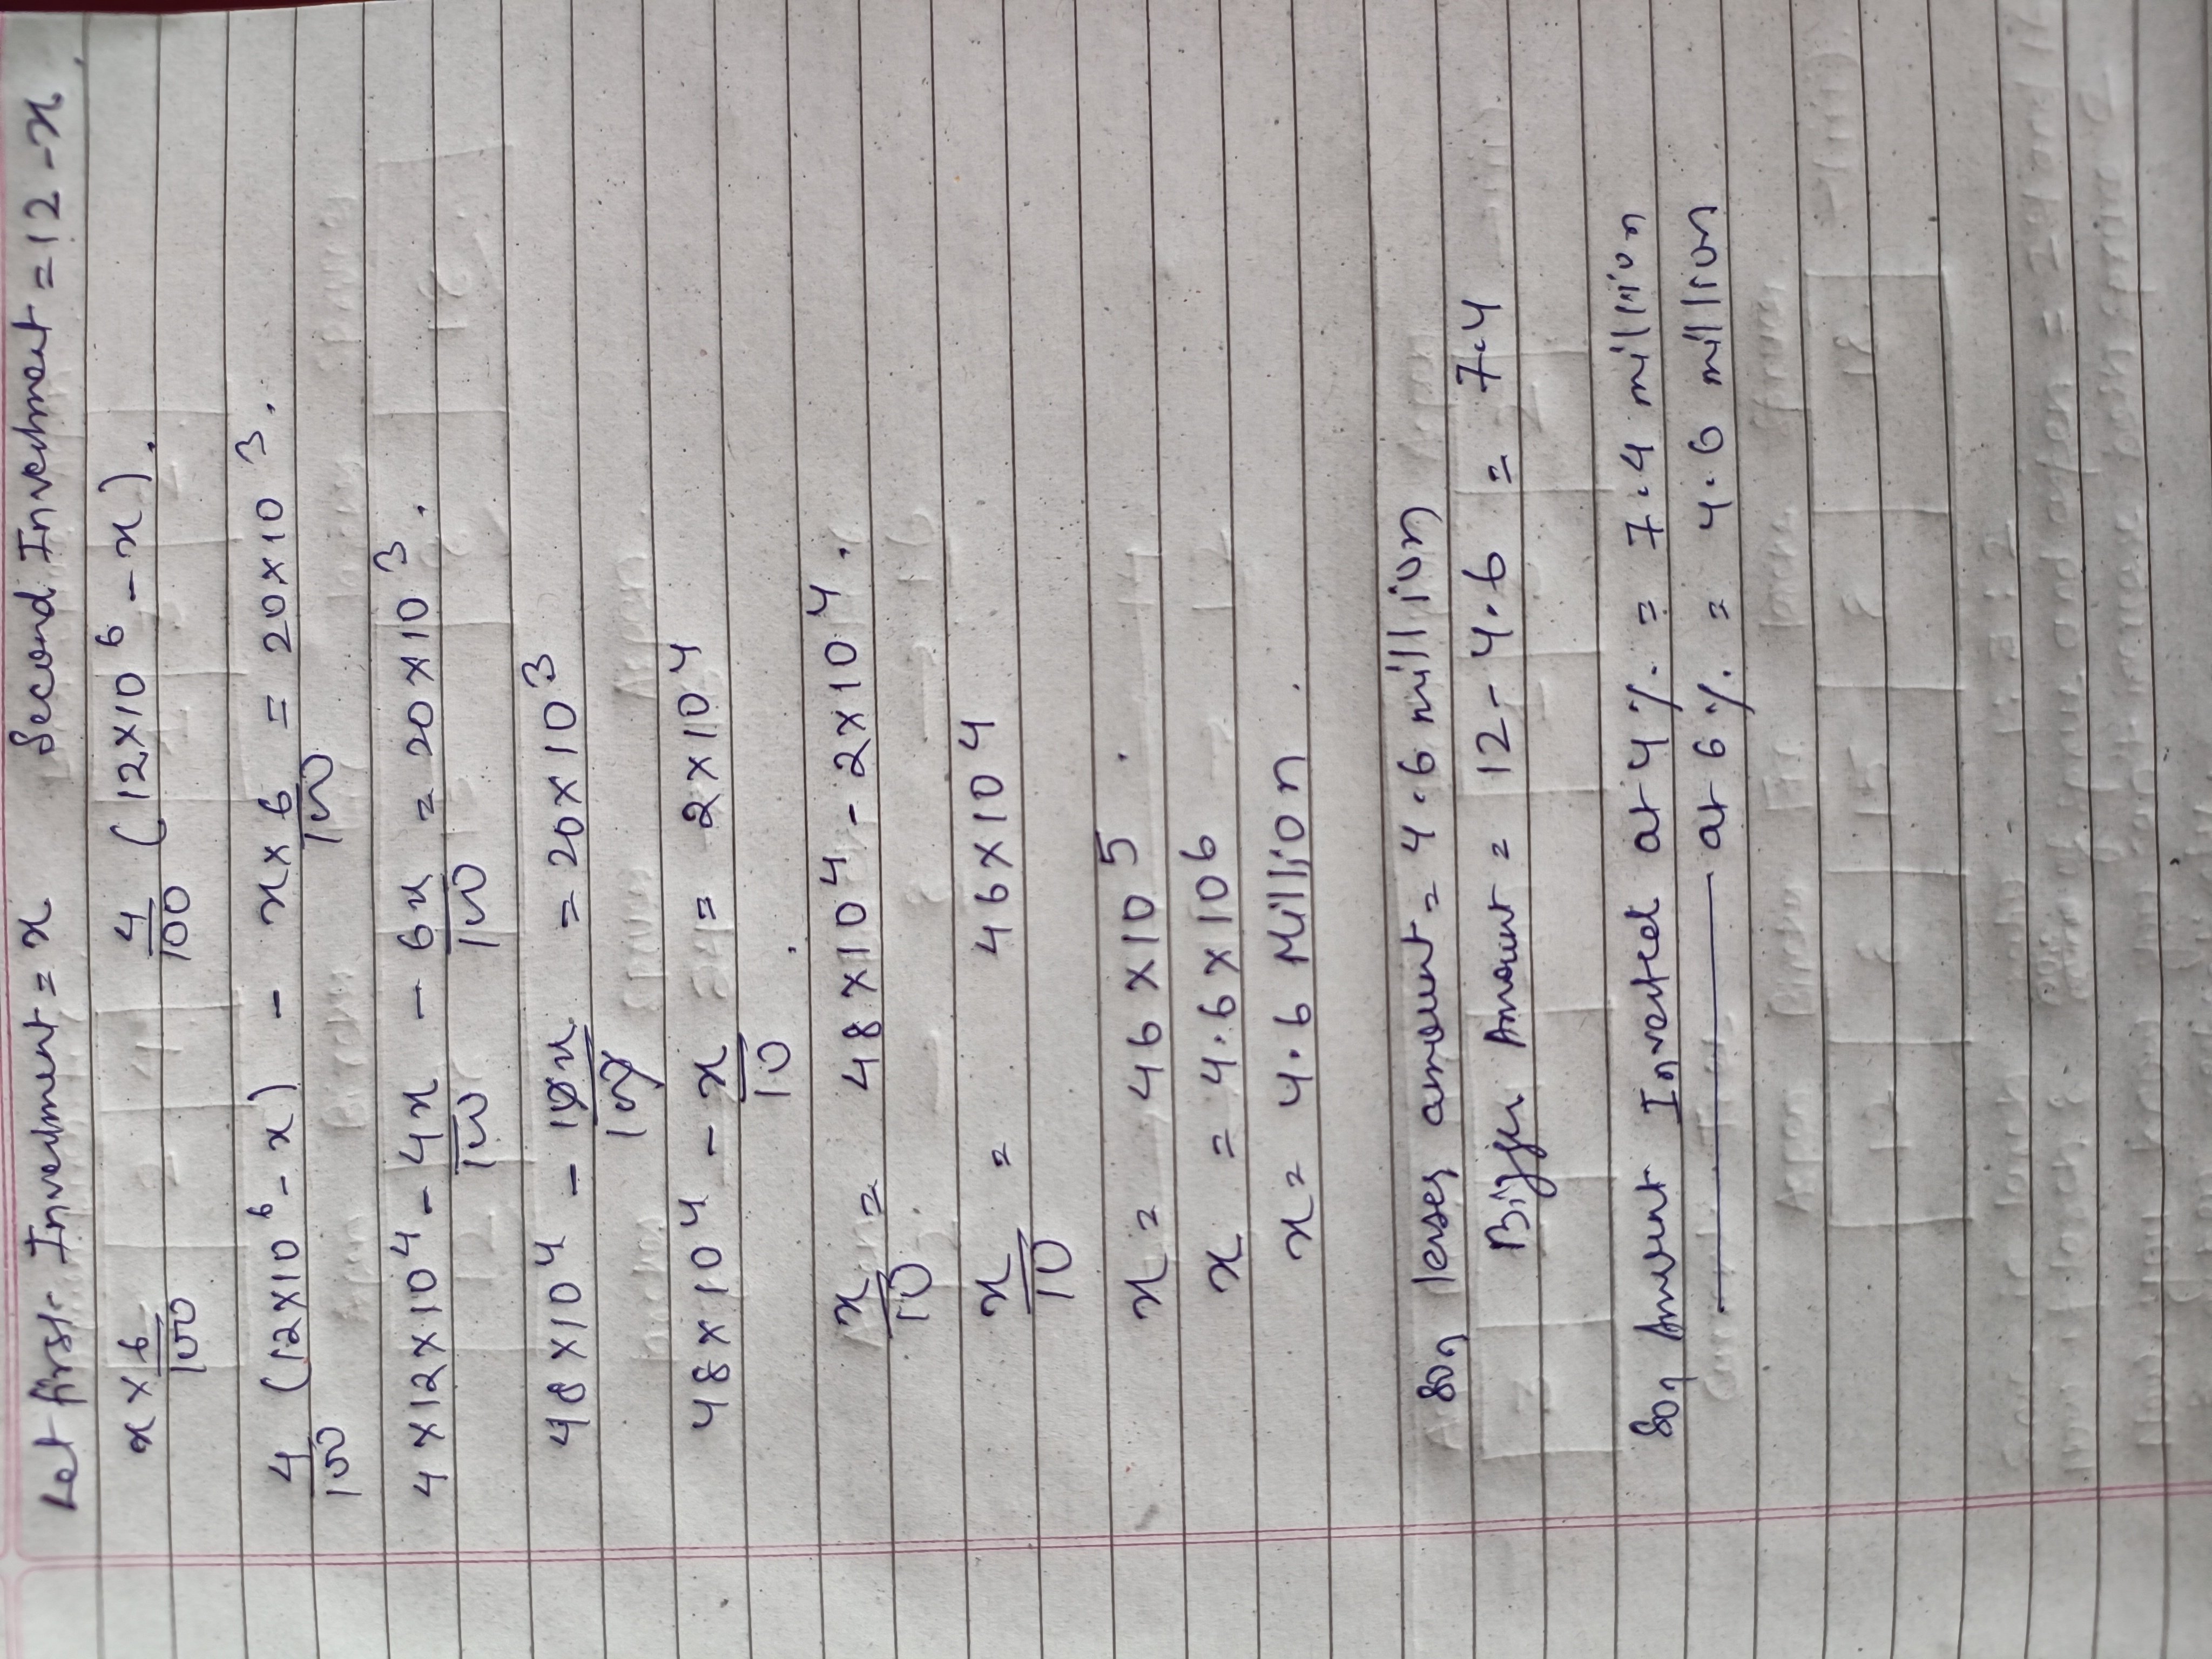 Let first Investment = x Second Investment = 12 - x
x × 6/100 4/100 (12×10⁶ - x).
4/100 (12×10⁶ - x) - x × 6/100 = 20×10³.
4×12×10⁴ - 4x/100 - 6x/100 = 20×10³.
48×10⁴ - 10x/100 = 20×10³
48×10⁴ - x/10 = 2×10⁴
x/10 = 48×10⁴ - 2×10⁴.
x/10 = 46×10⁴
x = 46×10⁵
x = 4.6×10⁶
x = 4.6 Million.
So, lesser amount = 4.6 million
Bigger Amount = 12 - 4.6 = 7.4
So, Amount Invested at 4% = 7.4 million
at 6% = 4.6 million